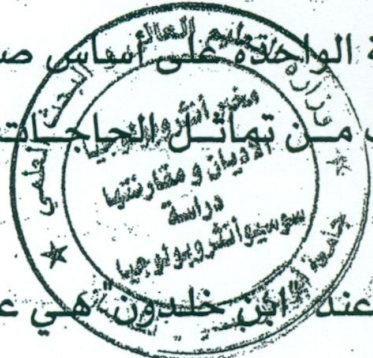 ة الواحدة على أساس ص
من تماثل الحاجات
عند "ابن خلدون" هي ع
وزارة التعليم العالي
البحث العلمي
جامعة
مخبر أنثروبولوجيا
الأديان و مقارنتها
دراسة
سوسيوأنثروبولوجيا